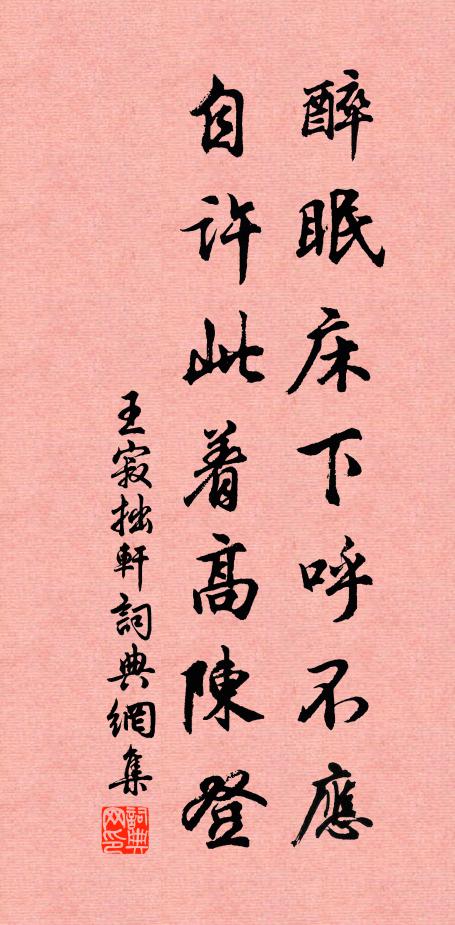 醉眠床下呼不應
自许此着高陳登
王寂拙軒詞典網集
詞典网印